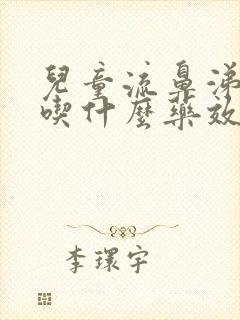 兒童流鼻涕
喫什麼藥效
李環宇